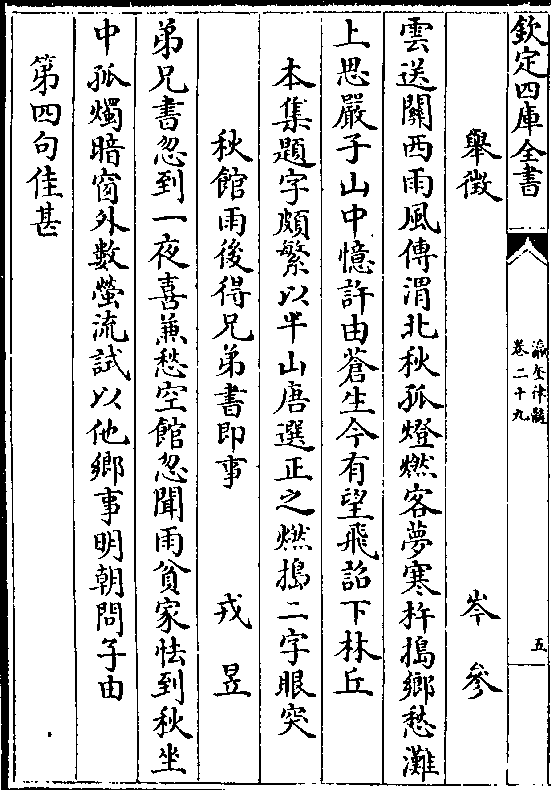 欽定四庫全書
瀛奎律髓
卷二十九
五
舉徵　岑參
雲送關西雨風傳渭北秋孤燈燃客夢寒杵搗鄉愁灘
上思嚴子山中憶許由蒼生今有望飛詔下林丘
本集題字頗繁以半山唐選正之燃搗二字眼突
秋館雨後得兄弟書即事　戎昱
弟兄書忽到一夜喜兼愁空館忽聞雨貧家怯到秋坐
中孤燭暗窗外數螢流試以他鄉事明朝問子由
第四句佳甚